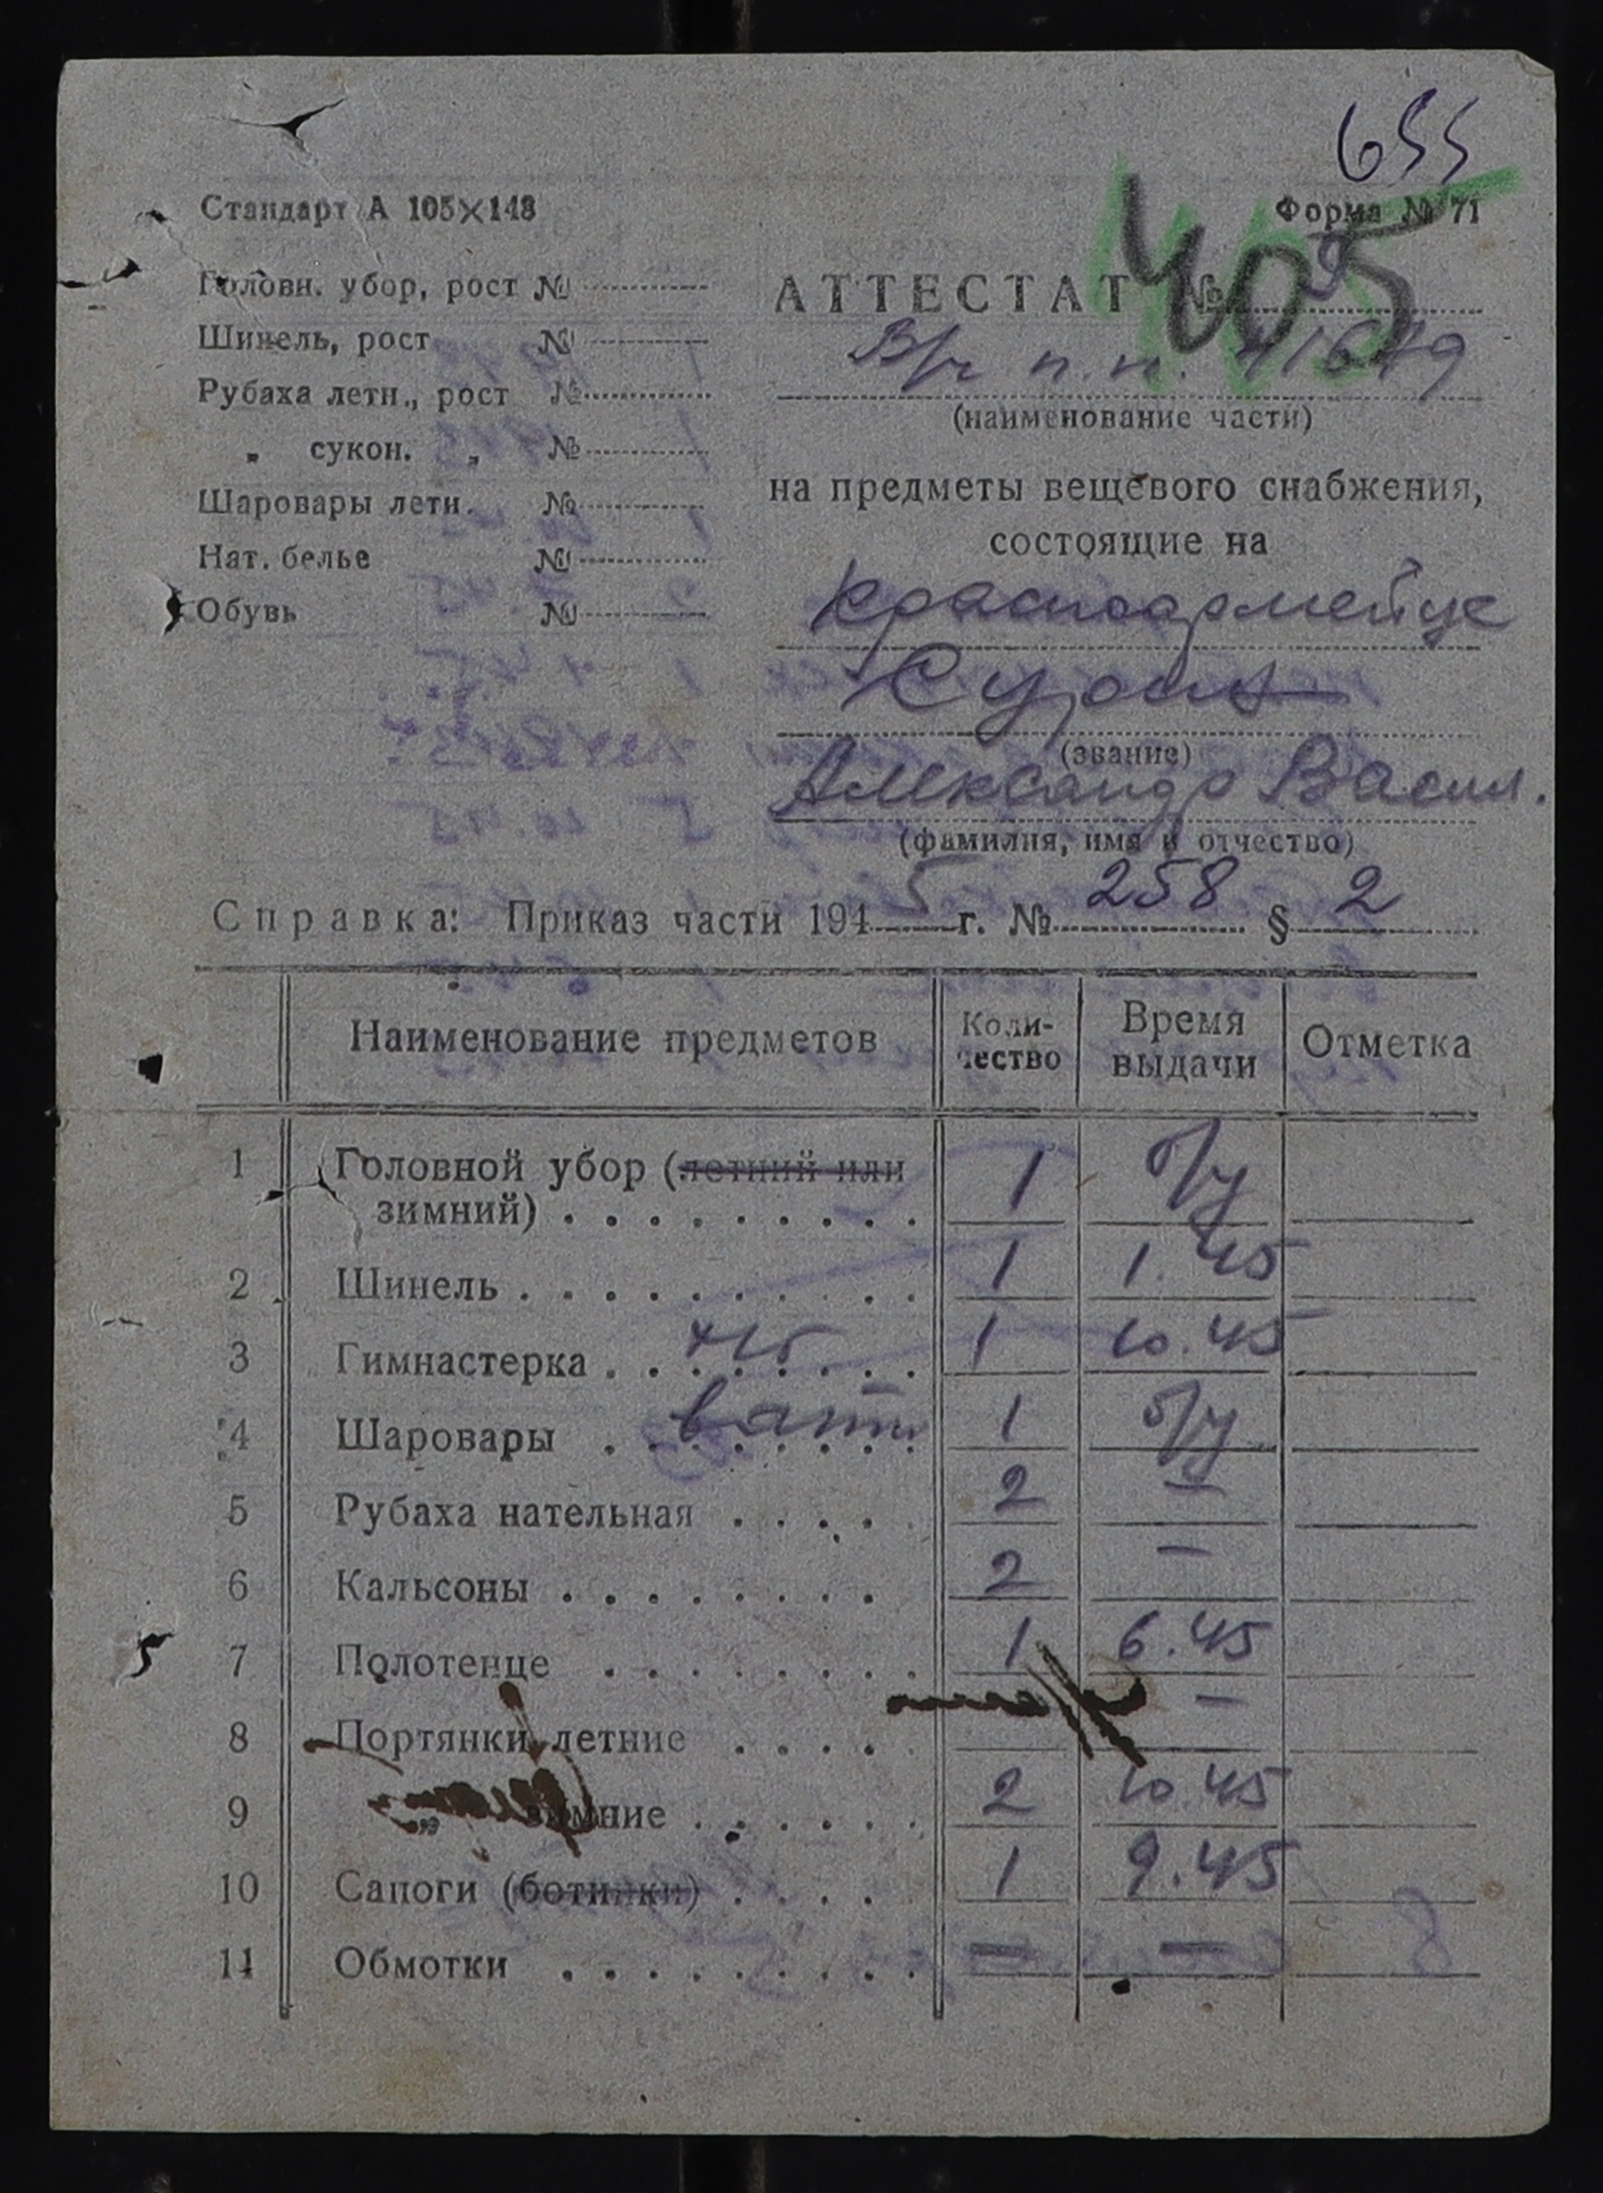 655
Стандарт А 105×148
Форма № 71
405
Головн. убор, рост №
Шинель, рост №
Рубаха летн., рост №
„ сукон. „ №
Шаровары летн. №
Нат. белье №
Обувь №
АТТЕСТАТ №
В/ч п.п. 41649
(наименование части)
на предметы вещевого снабжения,
состоящие на
красноармейце
(звание)
Александр Васил.
(фамилия, имя и отчество)
Справка: Приказ части 1945 г. № 258 § 2
Наименование предметов Количество Время выдачи Отметка
1 Головной убор (летний или зимний) 1 б/у
2 Шинель 1 1.45
3 Гимнастерка х/б 1 10.45
4 Шаровары ватн 1 б/у
5 Рубаха нательная 2 —
6 Кальсоны 2 —
7 Полотенце 1 6.45
8 Портянки летние —
9 „ зимние 2 10.45
10 Сапоги (ботинки) 1 9.45
11 Обмотки — —